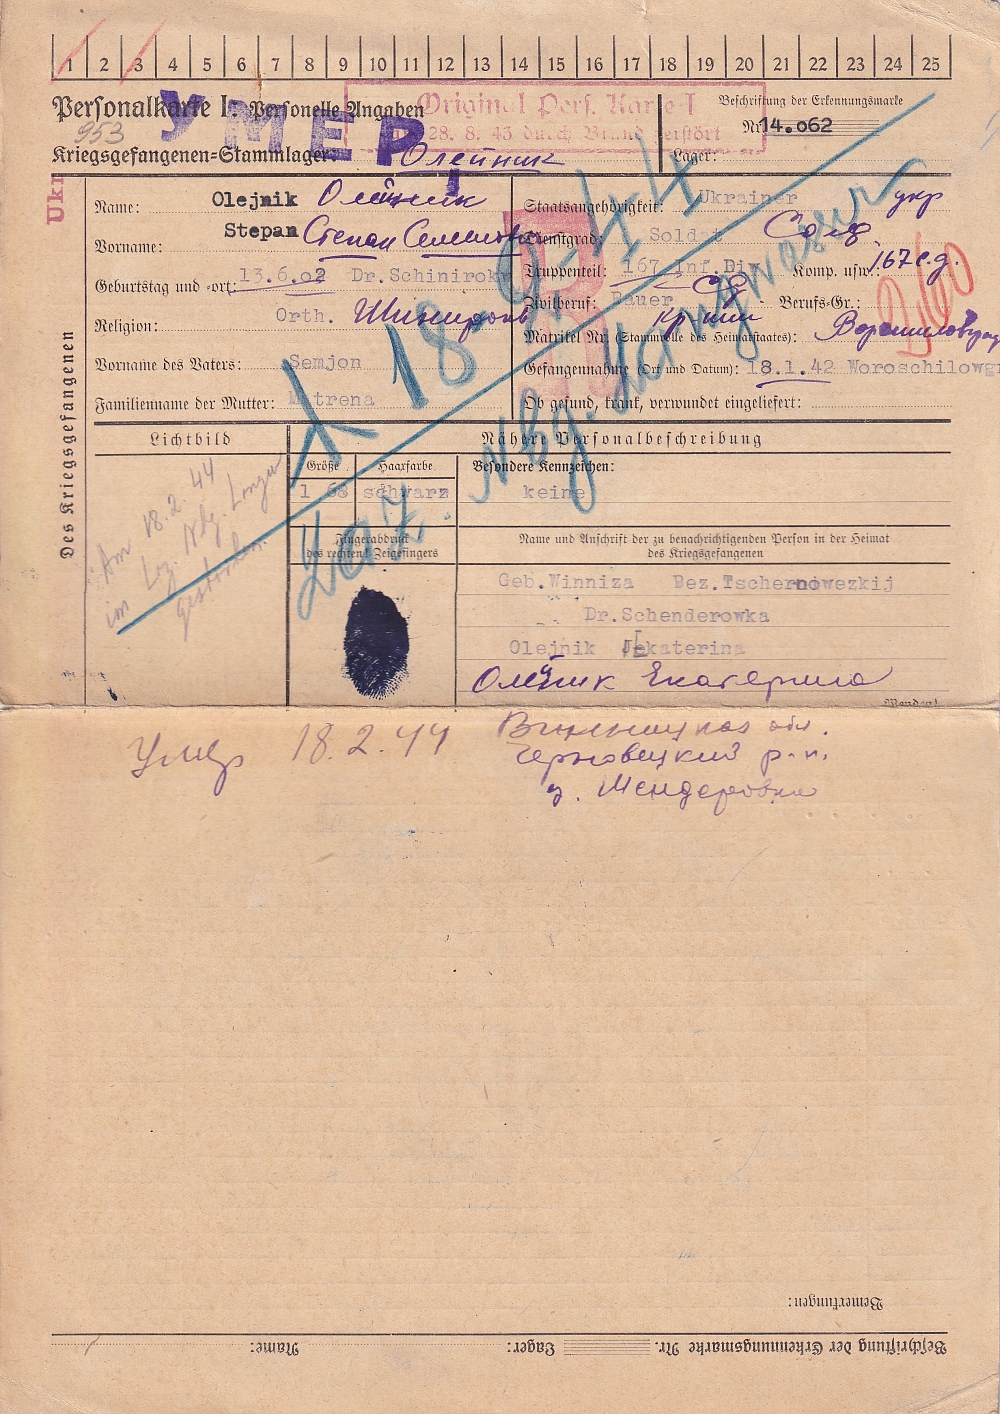 1 2 3 4 5 6 7 8 9 10 11 12 13 14 15 16 17 18 19 20 21 22 23 24 25
Personalkarte I: Personelle Angaben
УМЕР
Original Pers. Karte I
28. 8. 43 durch Brand zerstört
Beschriftung der Erkennungsmarke
Nr. 14.062
953
Kriegsgefangenen-Stammlager: Олейник
Lager:
Ukr
Des Kriegsgefangenen
Name: Olejnik Олейник
Vorname: Stepan Степан Семенович
Geburtstag und -ort: 13.6.02 Dr.Schinirok
Religion: Orth. Шинироків
Vorname des Vaters: Semjon
Familienname der Mutter: Matrena
Staatsangehörigkeit: Ukrainer укр
Dienstgrad: Soldat Солд
Truppenteil: 167 Inf.Div Komp. usw.: 167 с.д.
сд
Zivilberuf: Bauer Berufs-Gr.:
Matrikel Nr. (Stammrolle des Heimatstaates): Ворошиловград
Gefangennahme (Ort und Datum): 18.1.42 Woroschilowgr
Ob gesund, krank, verwundet eingeliefert:
18.2.44
Laz. Nbg. Langwasser
Lichtbild
Nähere Personalbeschreibung
Größe Haarfarbe Besondere Kennzeichen:
1 68 schwarz keine
Am 18.2.44
im Laz. Nbg. Langw
gestorben.
Fingerabdruck
des rechten Zeigefingers
Name und Anschrift der zu benachrichtigenden Person in der Heimat
des Kriegsgefangenen
Geb.Winniza Bez.Tschernowezkij
Dr.Schenderowka
Olejnik Jekaterina
Олейник Екатерина
Wenden!
Умер 18.2.44
Винницкая обл.
Черновецкий р-н.
д. Шендеровка
Bemerkungen:
Name: Lager: Beschriftung der Erkennungsmarke Nr.